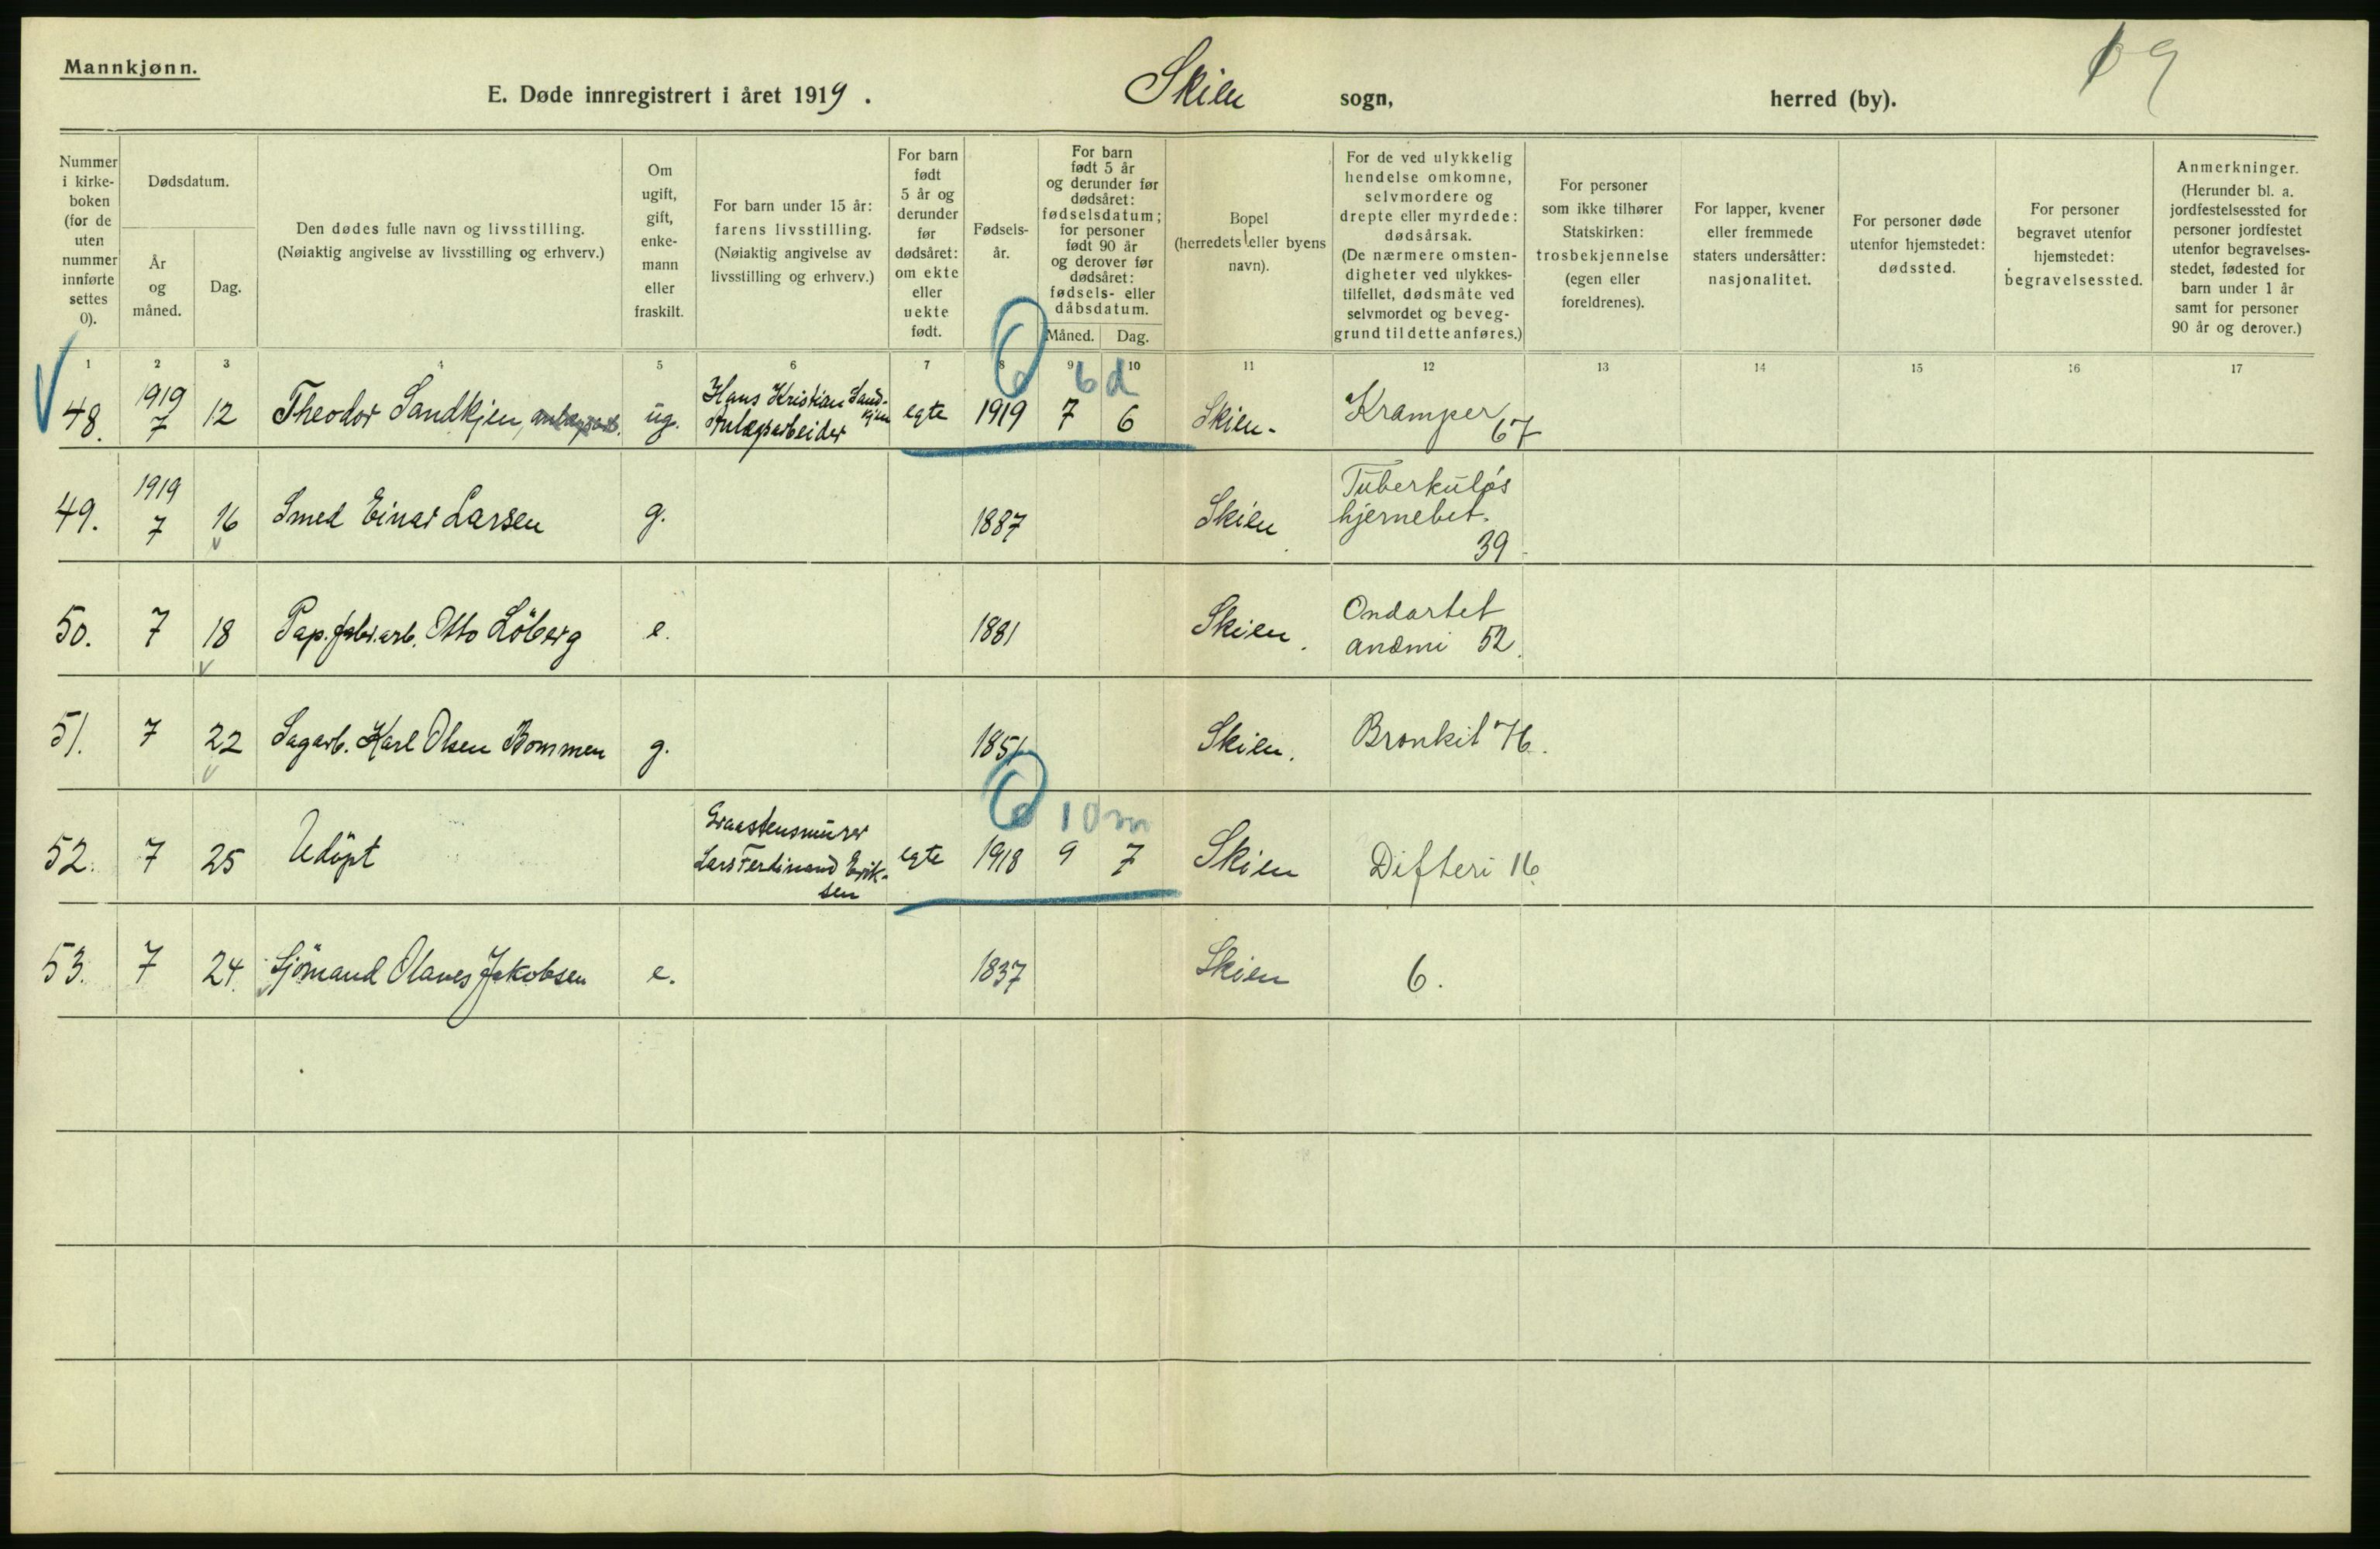 Mannkjønn.
E. Døde innregistrert i året 1919. Skien sogn, herred (by).
9
Nummer i kirke-boken (for de uten nummer innførte settes 0).
Dødsdatum.
År og måned.
Dag.
Den dødes fulle navn og livsstilling.
(Nøiaktig angivelse av livsstilling og erhverv.)
Om ugift, gift, enke-mann eller fraskilt.
For barn under 15 år: farens livsstilling.
(Nøiaktig angivelse av livsstilling og erhverv.)
For barn født 5 år og derunder før dødsåret: om ekte eller uekte født.
Fødsels-år.
For barn født 5 år og derunder før dødsåret: fødselsdatum; for personer født 90 år og derover før dødsåret: fødsels- eller dåbsdatum.
Måned. Dag.
Bopel (herredets eller byens navn).
For de ved ulykkelig hendelse omkomne, selvmordere og drepte eller myrdede: dødsårsak.
(De nærmere omsten-digheter ved ulykkes-tilfellet, dødsmåte ved selvmordet og beveg-grund til dette anføres.)
For personer som ikke tilhører Statskirken: trosbekjennelse (egen eller foreldrenes).
For lapper, kvener eller fremmede staters undersåtter: nasjonalitet.
For personer døde utenfor hjemstedet: dødssted.
For personer begravet utenfor hjemstedet: begravelsessted.
Anmerkninger.
(Herunder bl. a. jordfestelsessted for personer jordfestet utenfor begravelses-stedet, fødested for barn under 1 år samt for personer 90 år og derover.)
1 2 3 4 5 6 7 8 9 10 11 12 13 14 15 16 17
6 d
48. 1919 7 12 Theodor Sandkjen, ug. Hans Kristian Sand-kjen Anlægsarbeider egte 1919 7 6 Skien. Kramper 67
49. 1919 7 16 Smed Einar Larsen g. 1887 Skien Tuberkuløs hjernebet. 39
50. 7 18 Pap.fabr.arb. Otto Löberg e. 1881 Skien. Ondartet anæmi 52.
51. 7 22 Sagarb. Karl Olsen Bommen g. 1851 Skien. Bronkit 76.
10 m
52. 7 25 Udöpt Graastensmurer Lars Ferdinand Erik-sen egte 1918 9 7 Skien Difteri 16.
53. 7 24. Sjömand Olaves Jakobsen e. 1837 Skien 6.